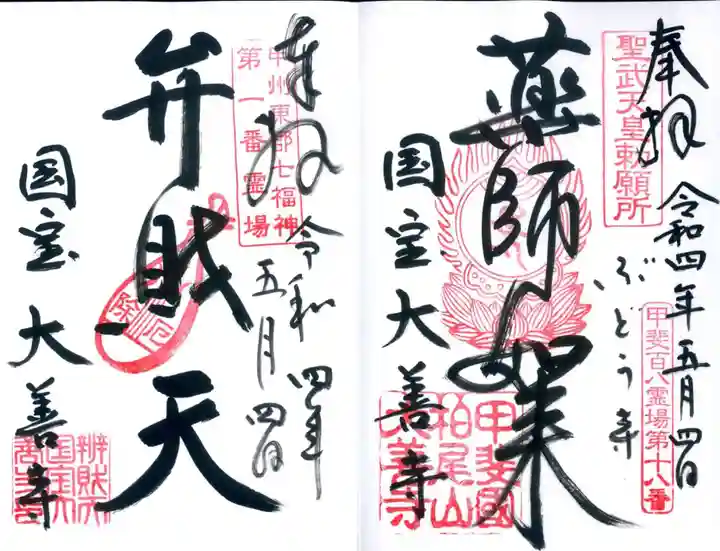 奉拝
聖武天皇勅願所
令和四年五月四日
甲斐百八霊場第十八番
ぶどう寺
薬師如来
国宝大善寺
甲斐國
柏尾山
大善寺
奉拝
甲州東郡七福神
第一番霊場
令和四年
五月四日
弁財天
厄除
国宝大善寺
辨財天
国宝大
善寺